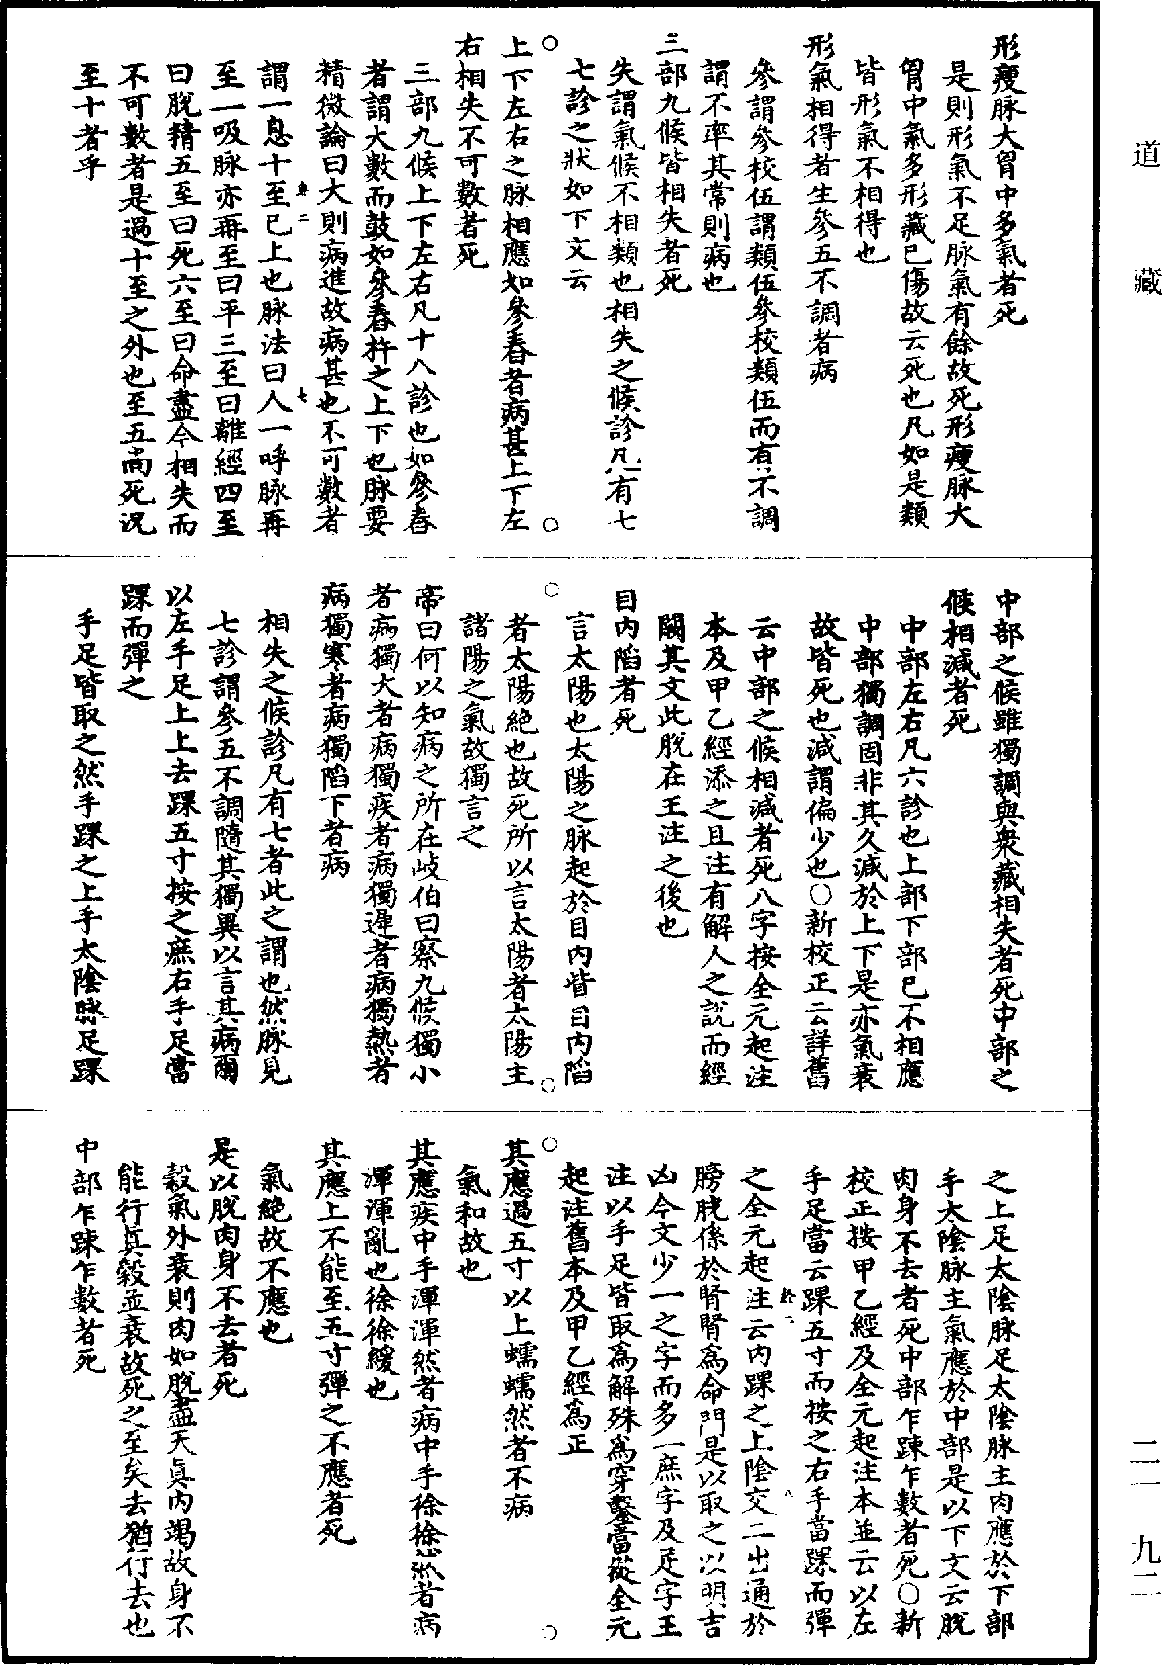 道藏
形瘦脉大胷中多氣者死
是則形氣不足脉氣有餘故死形瘦脉大
胷中氣多形藏已傷故云死也凡如是類
皆形氣不相得也
形氣相得者生參五不調者病
參謂參校伍謂類伍參校類伍而有不調
謂不率其常則病也
三部九候皆相失者死
失謂氣候不相類也相失之候診凡有七
七診之狀如下文云
上下左右之脉相應如參舂者病甚上下左
右相失不可數者死
三部九候上下左右凡十八診也如參舂
者謂大數而鼓如參舂杵之上下也脉要
精微論曰大則病進故病甚也不可數者
謂一息十至已上也脉法曰人一呼脉再
至一吸脉亦再至曰平三至曰離經四至
曰脫精五至曰死六至曰命盡今相失而
不可數者是過十至之外也至五尚死況
至十者乎
中部之候雖獨調與衆藏相失者死中部之
候相減者死
中部左右凡六診也上部下部已不相應
中部獨調固非其久減於上下是亦氣衰
故皆死也減謂偏少也○新校正云詳舊
云中部之候相減者死八字按全元起注
本及甲乙經添之且注有解人之說而經
闕其文此脫在王注之後也
目內陷者死
言太陽也太陽之脉起於目內眥目內陷
者太陽絕也故死所以言太陽者太陽主
諸陽之氣故獨言之
帝曰何以知病之所在岐伯曰察九候獨小
者病獨大者病獨疾者病獨遲者病獨熱者
病獨寒者病獨陷下者病
相失之候診凡有七者此之謂也然脉見
七診謂參五不調隨其獨異以言其病爾
以左手足上上去踝五寸按之庶右手足當
踝而彈之
手足皆取之然手踝之上手太陰脉足踝
之上足太陰脉足太陰脉主肉應於下部
手太陰脉主氣應於中部是以下文云脫
肉身不去者死中部乍踈乍數者死○新
校正按甲乙經及全元起注本並云以左
手足當云踝五寸而按之右手當踝而彈
之全元起注云內踝之上陰交二出通於
膀胱係於腎腎爲命門是以取之以明吉
凶今文少一之字而多一庶字及足字王
注以手足皆取爲解殊爲穿鑿當從全元
起注舊本及甲乙經爲正
其應過五寸以上蠕蠕然者不病
氣和故也
其應疾中手渾渾然者病中手徐徐然者病
渾渾亂也徐徐緩也
其應上不能至五寸彈之不應者死
氣絕故不應也
是以脫肉身不去者死
穀氣外衰則肉如脫盡天眞內竭故身不
能行眞穀並衰故死之至矣去猶行去也
中部乍踈乍數者死
二一 九二